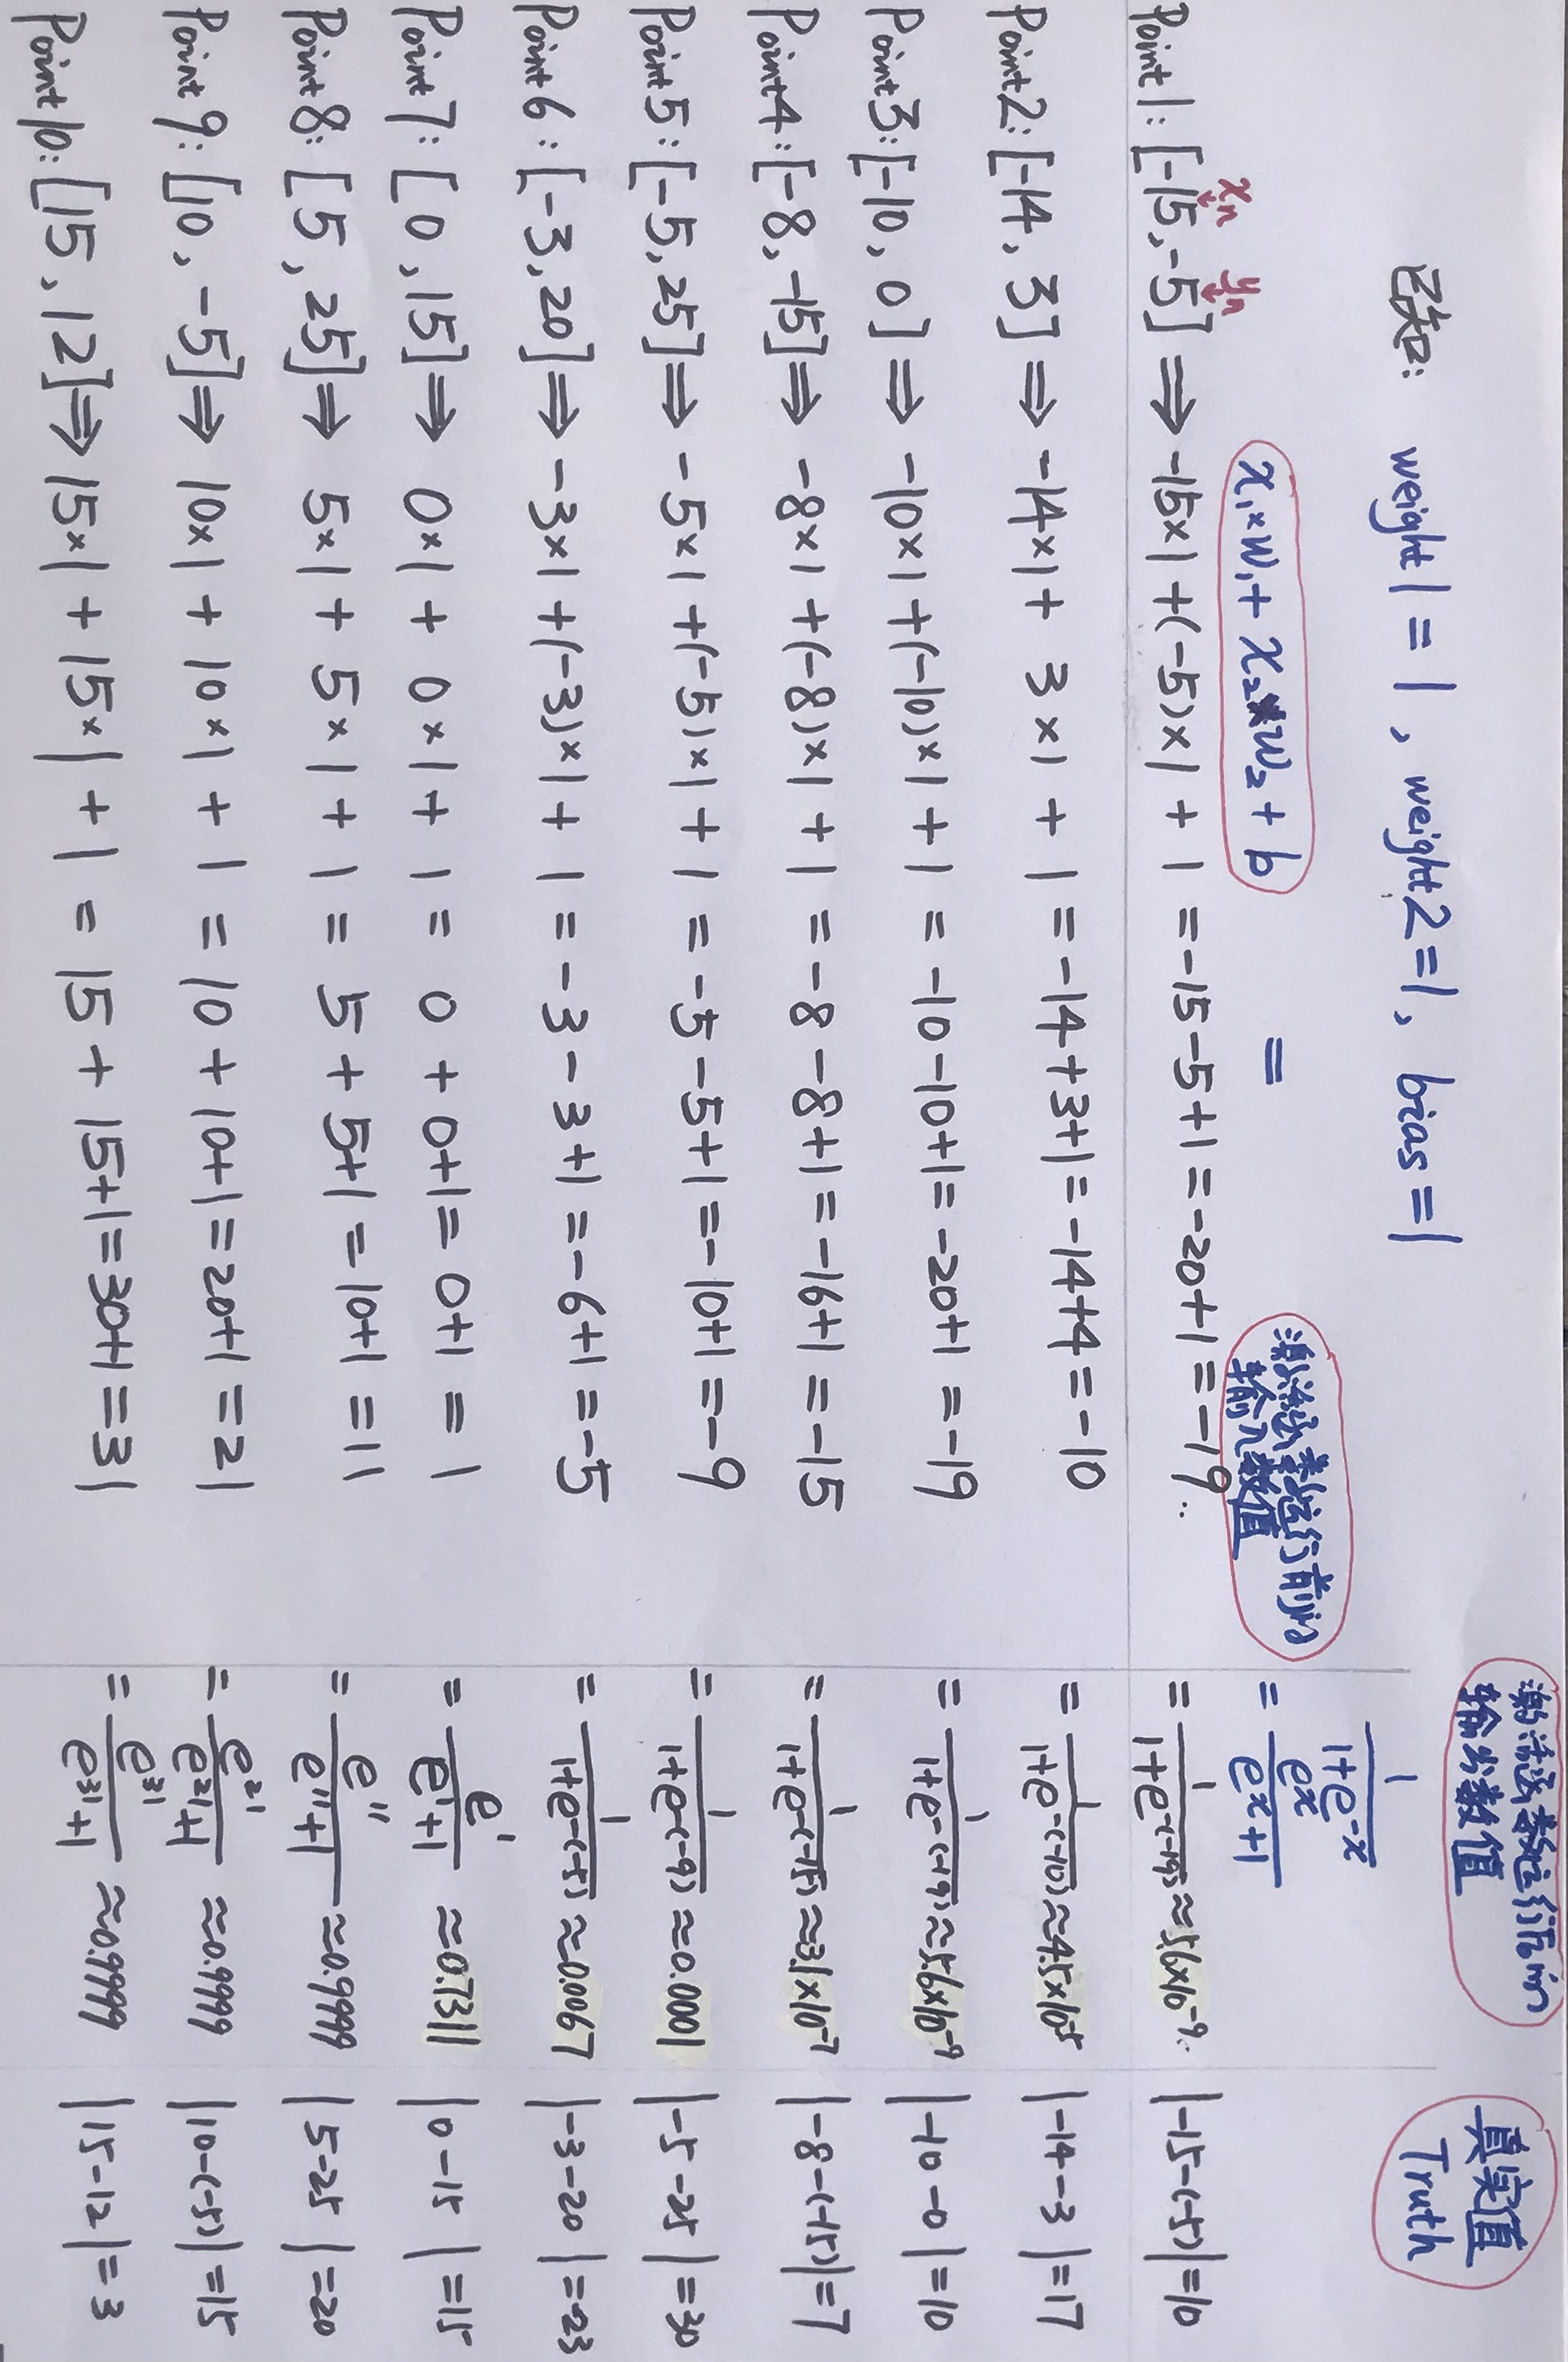 激活函数运行后的
输出数值
真实值
Truth
已知: weight1 = 1, weight2=1, bias=1
1/(1+e^-x)
x₁×w₁+ x₂×w₂+b = 激活函数运行前的
输入数值
= e^x/(e^x+1)
xn yn
Point1: [-15,-5] ⟹ -15×1+(-5)×1+1 =-15-5+1=-20+1=-19.. = 1/(1+e^-(-19)) ≈5.6×10^-9. |-15-(-5)|=10
Point2: [-14, 3] ⟹ -14×1+ 3×1 + 1 =-14+3+1=-14+4=-10 = 1/(1+e^-(-10)) ≈4.5×10^-5 |-14-3|=17
Point3: [-10, 0] ⟹ -10×1+(-10)×1+1 = -10-10+1= -20+1 =-19 = 1/(1+e^-(-19)) ≈5.6×10^-9 |-10-0|=10
Point4: [-8,-15] ⟹ -8×1+(-8)×1+1 = -8-8+1= -16+1 =-15 = 1/(1+e^-(-15)) ≈3.1×10^-7 |-8-(-15)|=7
Point5: [-5,25] ⟹ -5×1+(-5)×1+1 = -5-5+1=-10+1=-9 = 1/(1+e^-(-9)) ≈0.0001 |-5-25|=30
Point6: [-3,20] ⟹ -3×1+(-3)×1+1 = -3-3+1=-6+1=-5 = 1/(1+e^-(-5)) ≈0.0067 |-3-20|=23
Point7: [0,15] ⟹ 0×1+ 0×1+ 1 = 0+0+1= 0+1 = 1 = e^1/(e^1+1) ≈0.7311 |0-15|=15
Point8: [5, 25] ⟹ 5×1+ 5×1+ 1 = 5+5+1=10+1=11 = e^11/(e^11+1) ≈0.9999 |5-25|=20
Point9: [10,-5] ⟹ 10×1+ 10×1+ 1 = 10+10+1=20+1=21 = e^21/(e^21+1) ≈0.9999 |10-(-5)|=15
Point10: [15,12] ⟹ 15×1+15×1+1 = 15+15+1=30+1=31 = e^31/(e^31+1) ≈0.9999 |15-12|=3